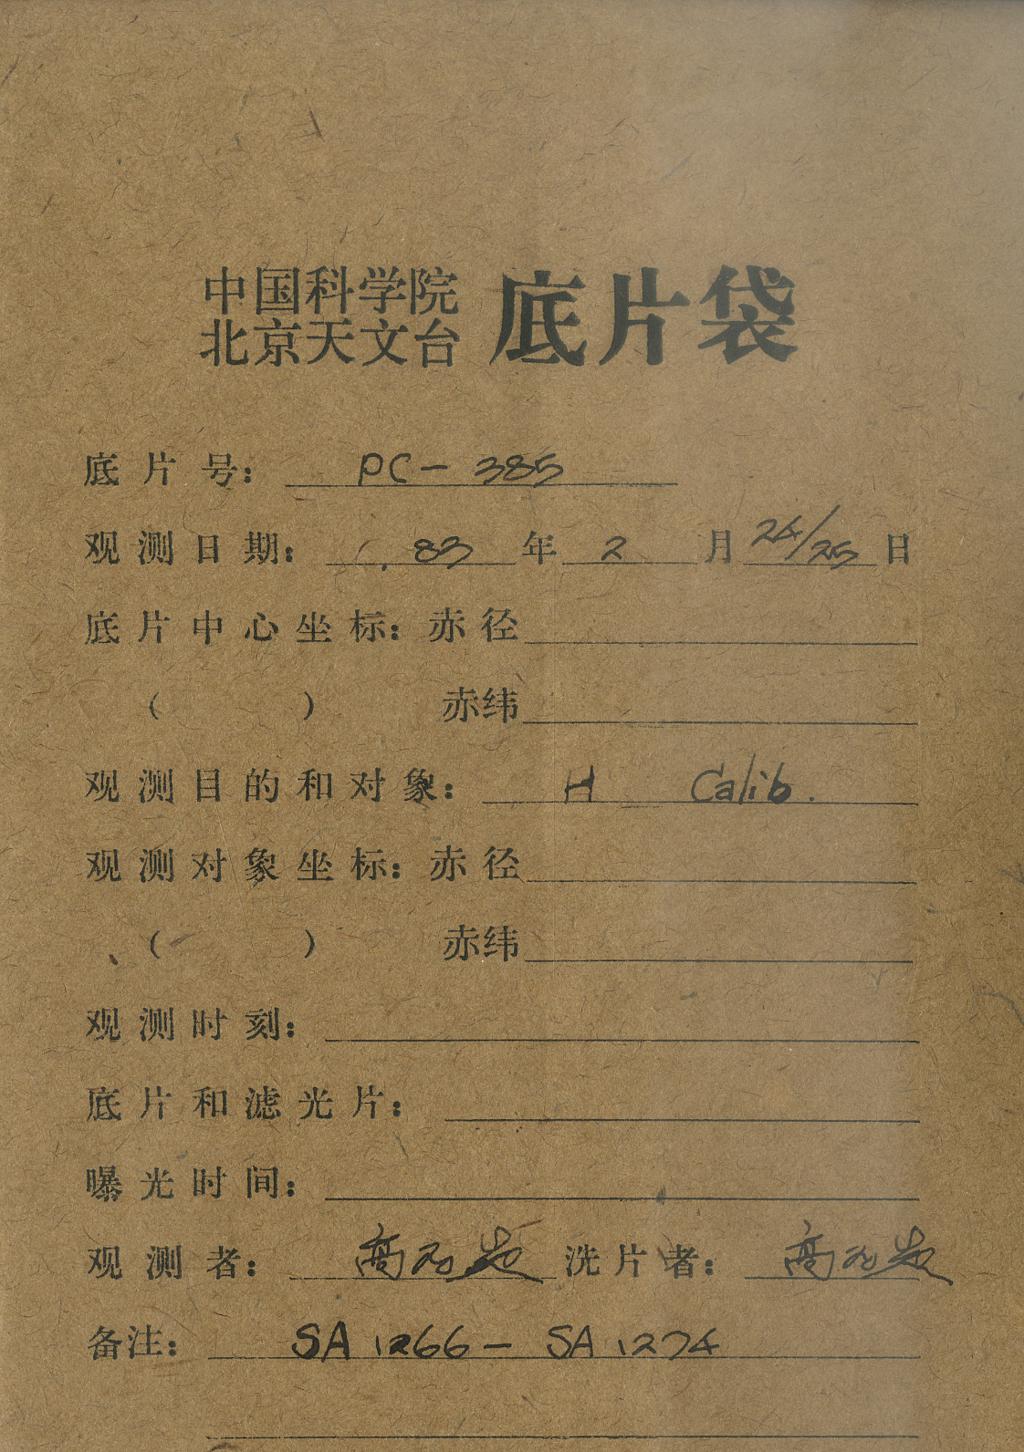 中国科学院
北京天文台 底片袋
底片号: PC-385
观测日期: 83 年 2 月 24/25 日
底片中心坐标: 赤径
( ) 赤纬
观测目的和对象: H Calib.
观测对象坐标: 赤径
( ) 赤纬
观测时刻:
底片和滤光片:
曝光时间:
观测者: 高 洗片者: 高
备注: SA 1266-SA 1274